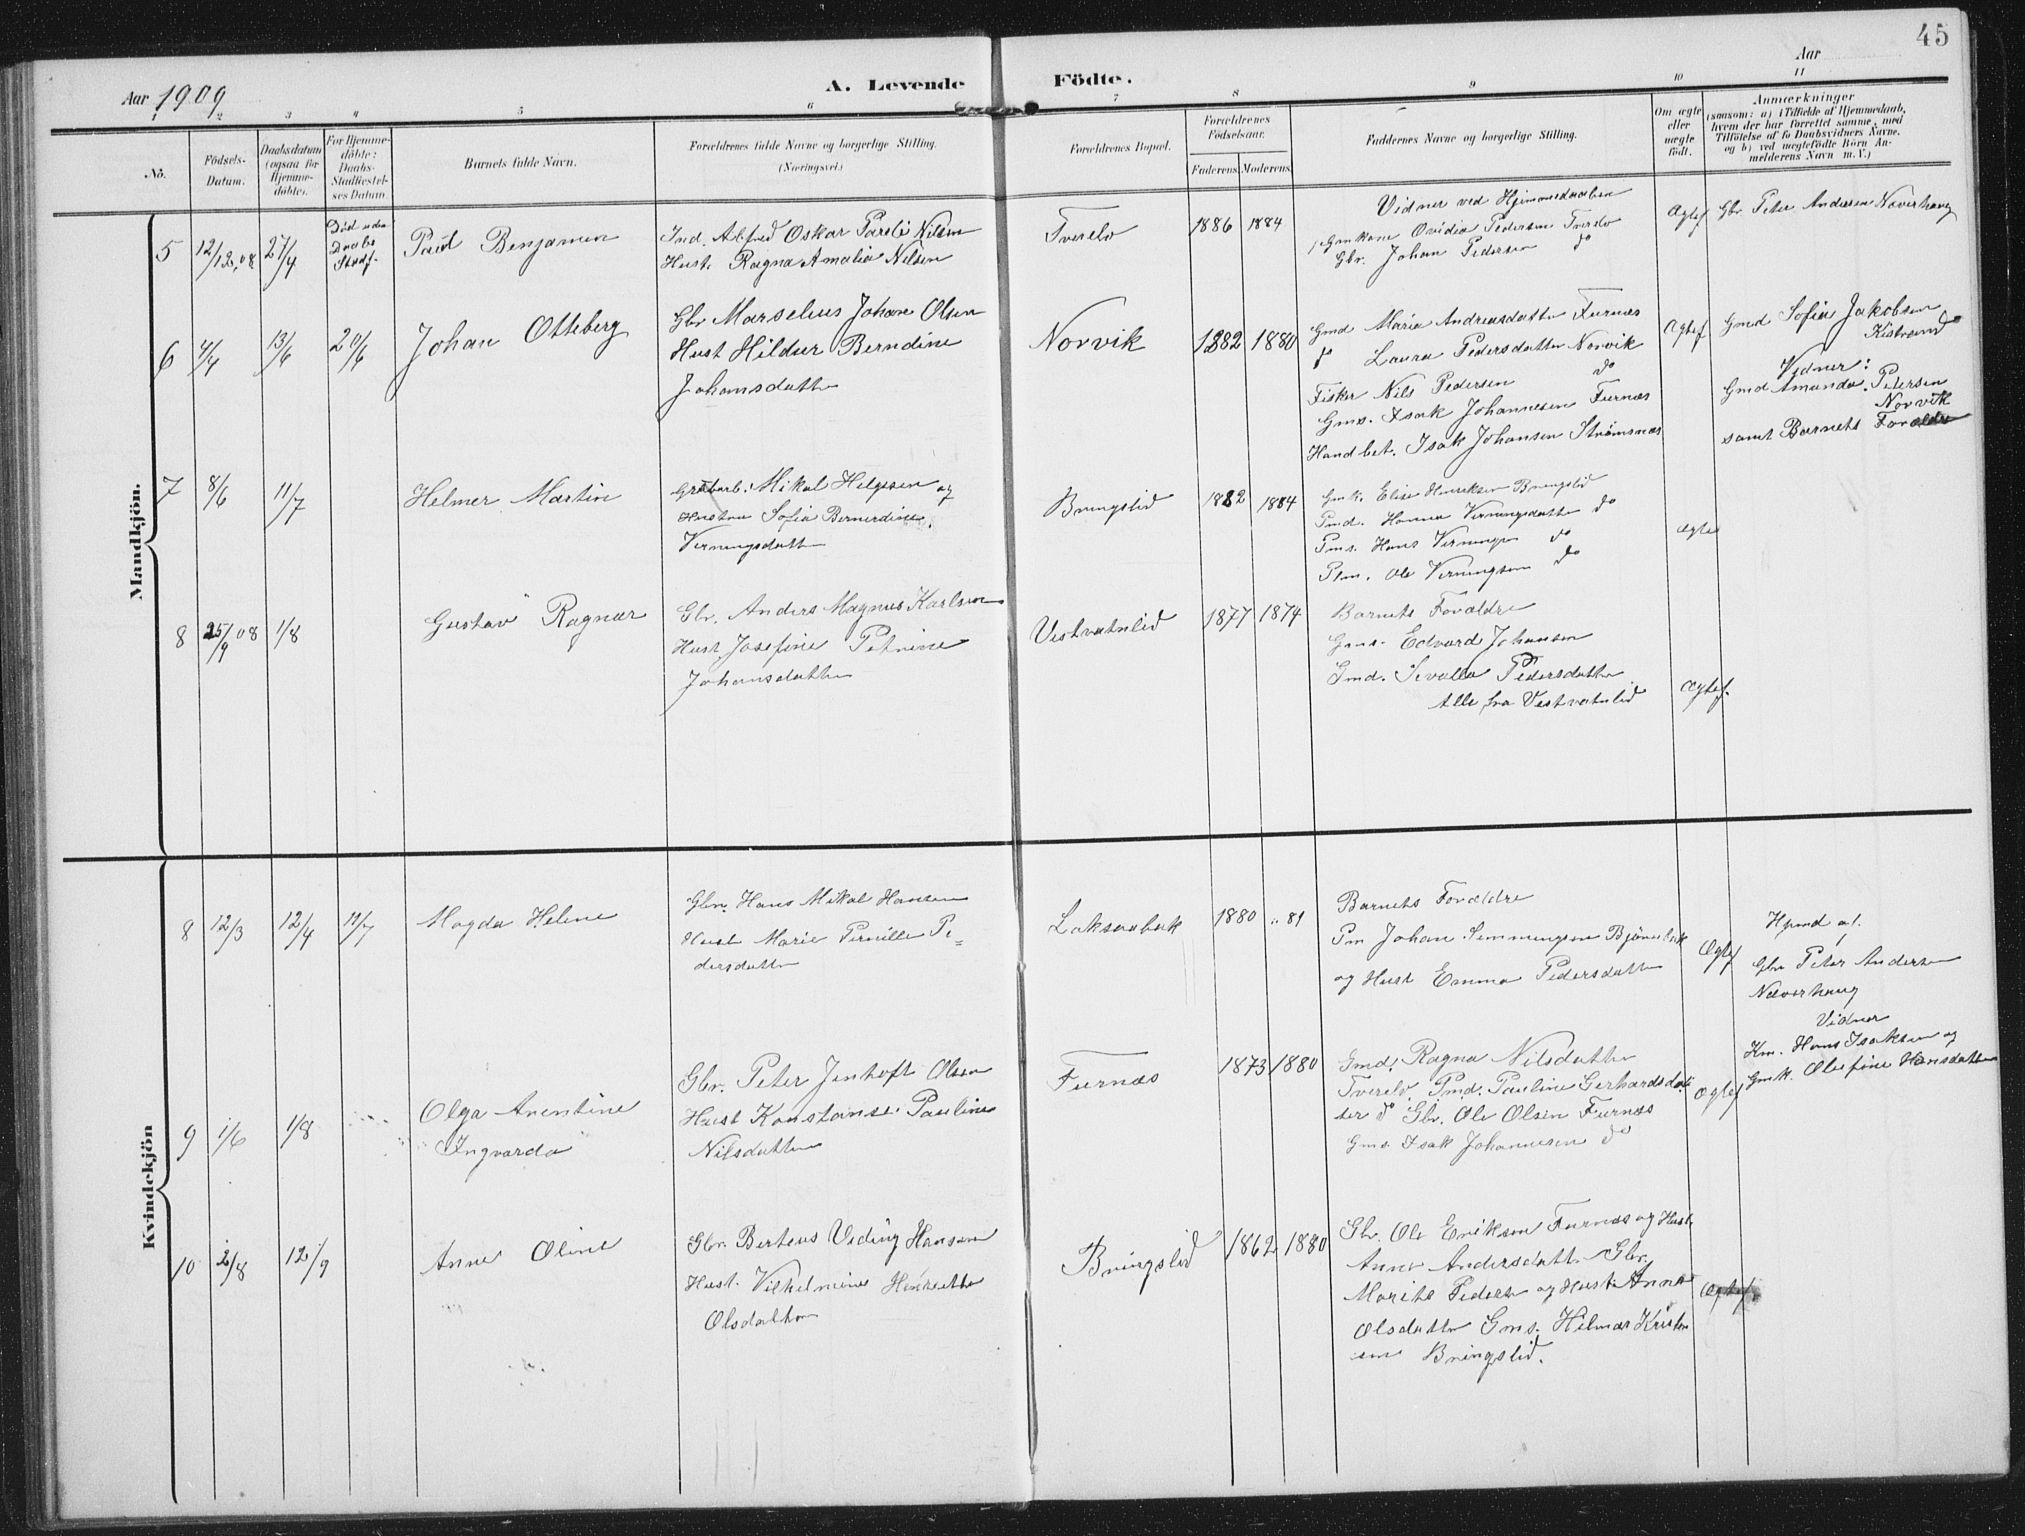 45
Aar 1909
A. Levende Födte.
Aar
1 2 3 4 5 6 7 8 9 10 11
No.
Födsels-
Datum.
Daabsdatum
(ogsaa for
Hjemme-
döbte).
For Hjemme-
döbte:
Daabs-
Stadfæstel-
ses Datum
Barnets fulde Navn.
Forældrenes fulde Navne og borgerlige Stilling.
(Næringsvei.)
Forældrenes Bopæl.
Forældrenes
Födselsaar.
Faderens Moderens
Faddernes Navne og borgerlige Stilling.
Om ægte
eller
uægte
födt.
Anmærkninger
(saasom: a) i Tilfælde af Hjemmedaab,
hvem der har forrettet samme, med
Tilföielse af to Daabsvidners Navne,
og b) ved uægtefödte Börn An-
melderens Navn m. V.)
Mandkjön.
5 12/12,08 27/4
Död uden
Daabs
Stadf.
Paul Benjamin
Ind. Alfred Oskar Pareli Nilsen
Hust. Ragna Amalia Nilsen
Tverelv
1886 1884
Vidner ved Hjemmedaaben
Gmkone Ovidia Pedersen Tverelv
Gbr. Johan Pedersen do
Ægtef
Gbr. Peter Andersen Næverhaug
6 4/4 13/6 20/6
Johan Otteberg
Gbr Marselius Johan Olsen
Hust Hildur Berndine
Johansdatter
Norvik
1882 1880
Gmd Maria Andreasdatter Furnæs
do Laura Pedersdatter Norvik
Fisker Nils Pedersen do
Gms. Isak Johannesen Furnæs
Handbet. Isak Johansen Strømsnæs
Ægtef
Gmd Sofia Jakobsen
Kistrand
Vidner:
Gmd Amanda Petersen
Norvik
samt Barnets Forældre
7 8/6 11/7
Helmer Martin
Grubarb. Mikal Helgesen og
Hustru Sofia Bernerdine
Verningsdatter
Bringslid
1882 1884
Gmk. Elise Henriksen Bringslid
Pmd. Hanna Verningsdatter do
Pms. Hans Verningsen do
Plm. Ole Verningsen do
Ægte
8 25/9 08 1/8
Gustav Ragnar
Gbr. Anders Magnus Karlsen
Hust Josefine Petrine
Johansdatter
Vestvatnlid
1877 1874
Barnets Forældre
Gms. Edvard Johansen
Gmd. Sevalla Pedersdatter
Alle fra Vestvatnlid
Ægtef.
Kvindekjön
8 12/3 12/4 11/7
Magda Helene
Gbr. Hans Mikal Hansen
Hust Marie Pernille Pe=
dersdatter
Laksaabak
1880 " 81
Barnets Forældre
Pm Johan Simmingsen Bjørnebak
og Hust Emma Pedersdatter
Ægtef
Hjmd af.
Gbr Peter Andersen
Næverhaug
Vidner
Km. Hans Isaksen og
Gmk. Olefine Hansdatter
9 1/6 1/8
Olga Arentine
Ingvarda
Gbr. Peter Jenhoft Olsen
Hust Konstanse Pauline
Nilsdatter
Furnæs
1873 1880
Gmd. Ragna Nilsdatter
Tverelv Pmd. Pauline Gerhardsdat
ter do Gbr. Ole Olsen Furnæs
Gms Isak Johannesen do
Ægtef
10 2/8 12/9
Anne Oline
Gbr. Berteus Veding Hansen
Hust. Vilhelmine Henrette
Olsdatter
Bringslid
1862 1880
Gbr. Ole Eriksen Furnæs og Hust.
Anne Andersdatter. Gbr.
Morits Pedersen og Hust. Anna
Olsdatter Gms. Hilmar Kristen
sen Bringslid.
Ægtef.